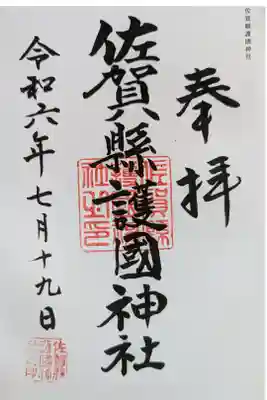 佐賀縣護國神社
奉拝
佐賀縣護國神社
令和六年七月十九日